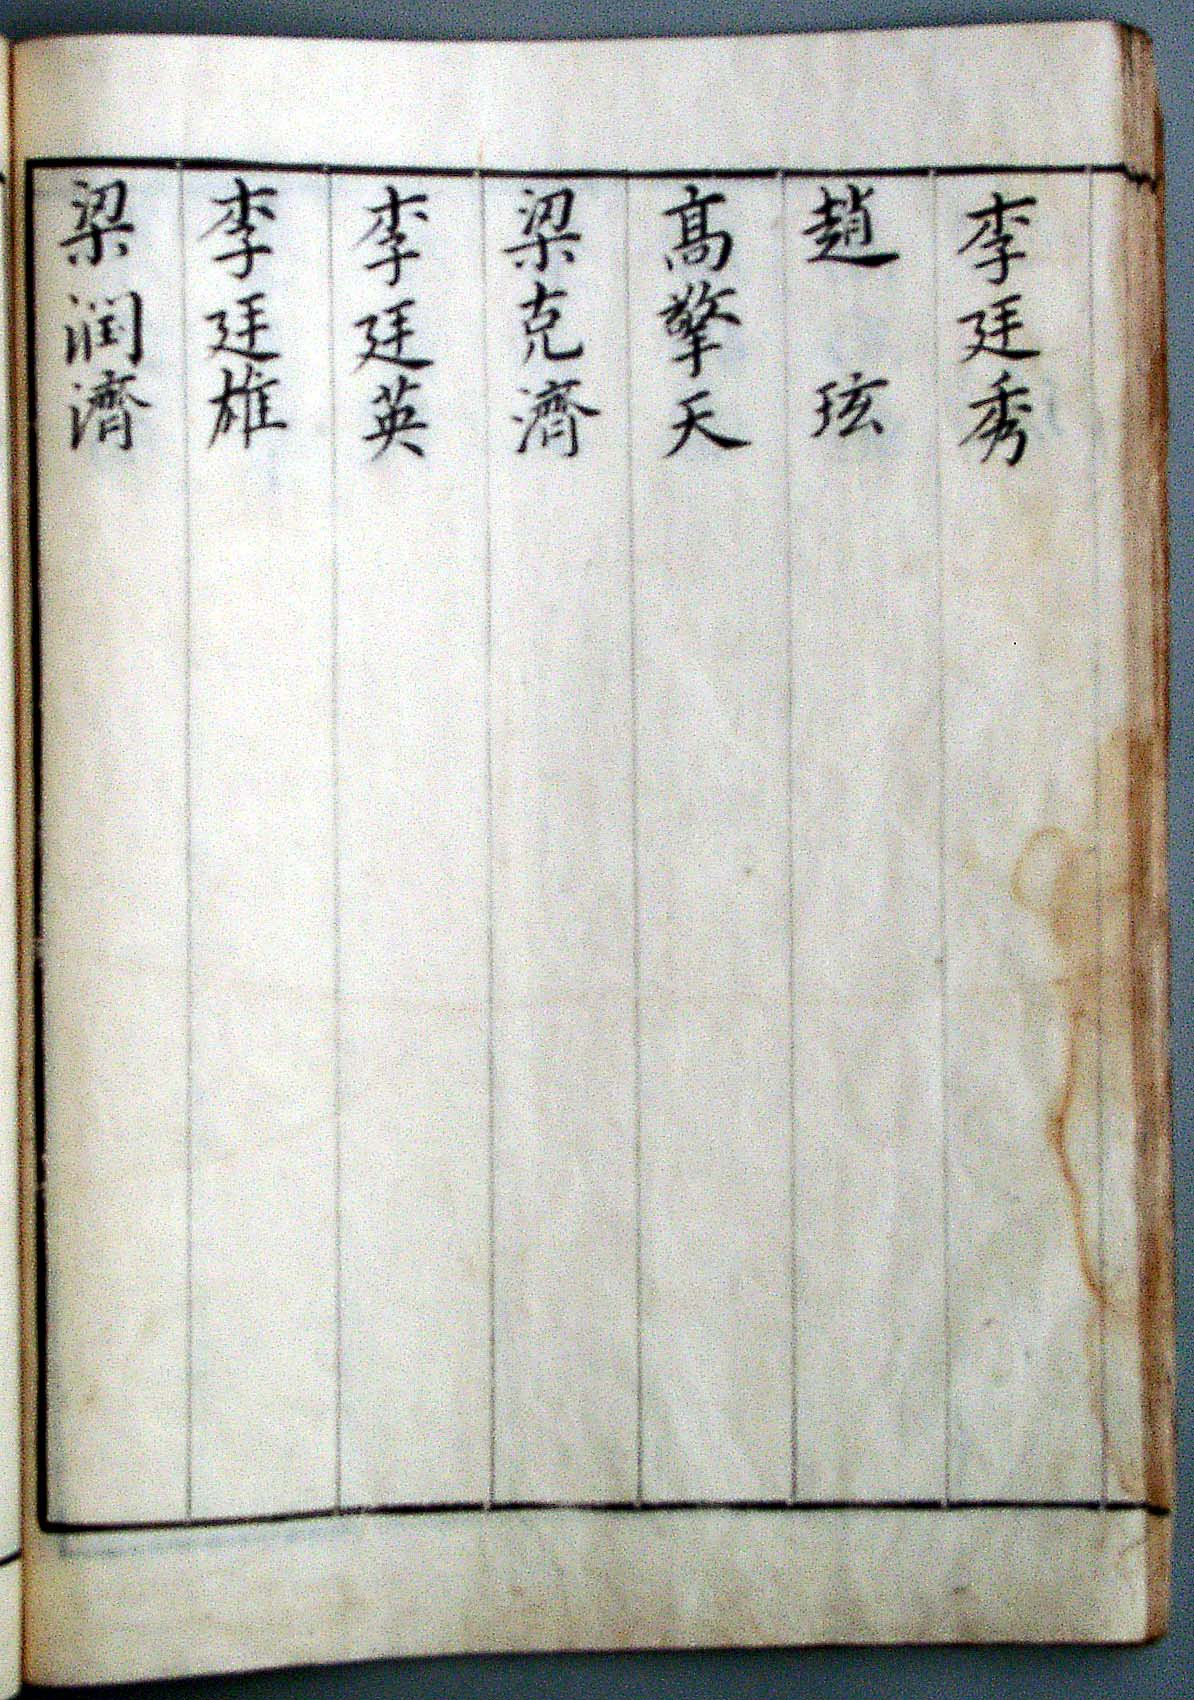 李廷秀
趙玹
髙擎天
梁克濟
李廷英
李廷雄
梁潤濟